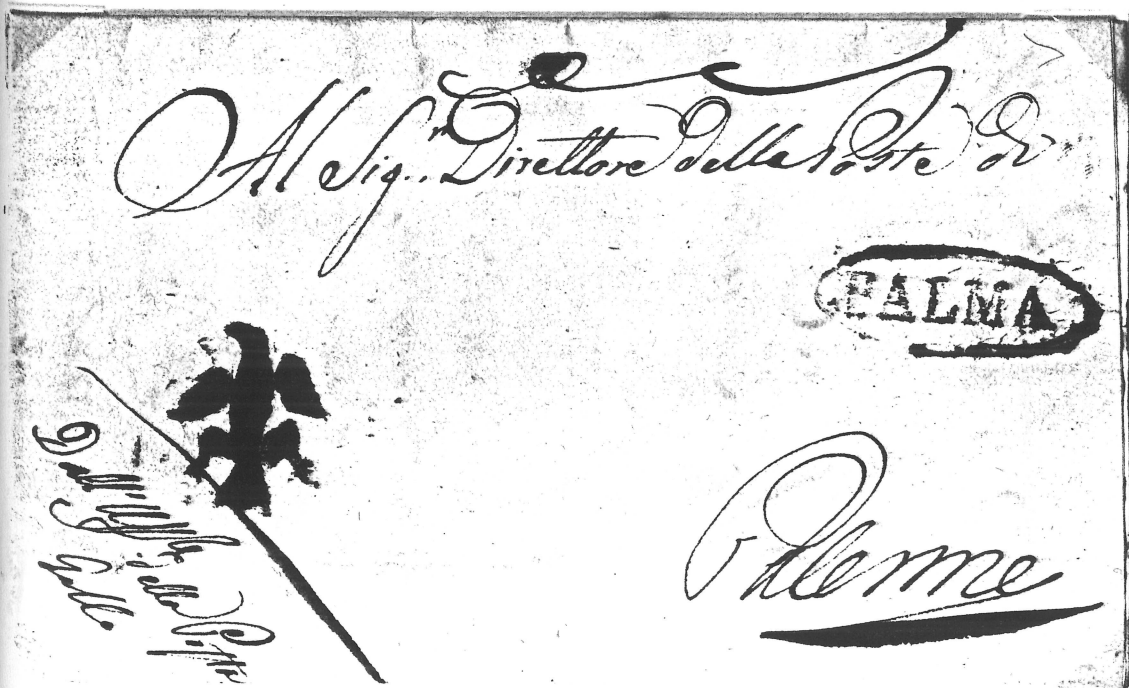 Al Sig.r Direttore della Poste di
PALMA
Palermo
Dall'Uff.le
della Posta
Gallo